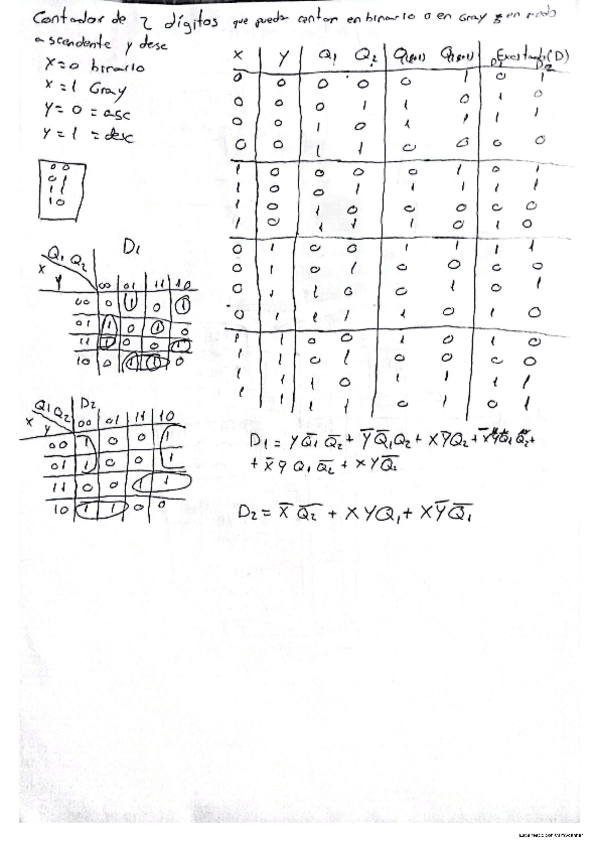 Contador de 2 dígitos que pueda contar en binario o en Gray en modo
ascendente y desc
X=0 binario
X=1 Gray
Y=0 =asc
Y=1 =desc
00
01
11
10
X Y Q1 Q2 Q1(t+1) Q2(t+1) D1 D2
0 0 0 0 0 1 0 1
0 0 0 1 1 0 1 0
0 0 1 0 1 1 1 1
0 0 1 1 0 0 0 0
1 0 0 0 0 1 0 1
1 0 0 1 1 1 1 1
1 0 1 0 0 0 0 0
1 0 1 1 1 0 1 0
0 1 0 0 1 1 1 1
0 1 0 1 0 0 0 0
0 1 1 0 0 1 0 1
0 1 1 1 1 0 1 0
1 1 0 0 1 0 1 0
1 1 0 1 0 0 0 0
1 1 1 0 1 1 1 1
1 1 1 1 0 1 0 1
D1
Q1 Q2
X Y 00 01 11 10
00 0 1 0 1
01 1 0 1 0
11 1 0 0 1
10 0 1 1 0
D2
Q1 Q2
X Y 00 01 11 10
00 1 0 0 1
01 1 0 0 1
11 0 0 1 1
10 1 1 0 0
D2 = X̅ Q̅2 + X Y Q1 + X Y̅ Q̅1